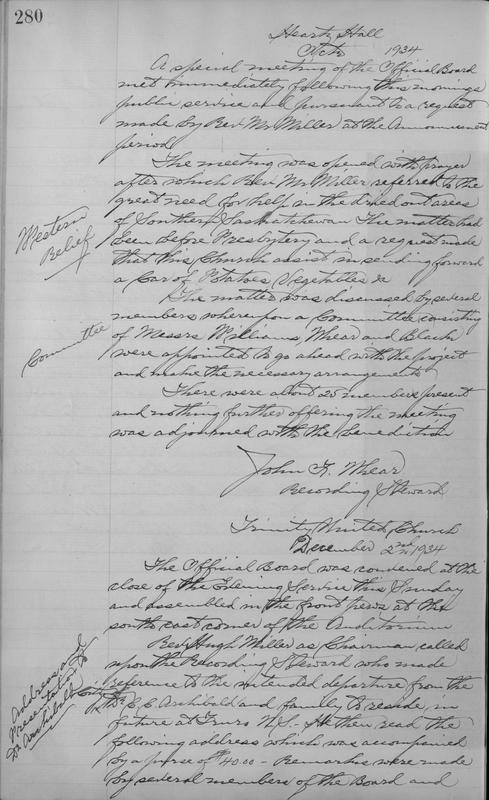 280
Heartz Hall
Octr 1934
A special meeting of the Official Board
met immediately following this mornings
public service and pursuant to a request
made by Rev Mr Miller at the Announcement
period
The meeting was opened with prayer
after which Rev Mr Miller referred to the
great need for help in the dried out areas
of Southern Saskatchewan The matter had
been before Presbytery and a request made
that this Church assist in sending forward
a Car of Potatoes Vegetables &c
Western
Relief
The matter was discussed by several
members whereupon a Committee consisting
of Messrs Williams, Whear and Black
were appointed to go ahead with the project
and make the necessary arrangements
Committee
There were about 25 members present
and nothing further offering the meeting
was adjourned with the benediction
John F. Whear
Recording Steward
Trinity United Church
December 2nd 1934
The Official Board was convened at the
close of the Evening Service this Sunday
and assembled in the front pews at the
south east corner of the Auditorium
Rev Hugh Miller as Chairman called
upon the Recording Steward who made
reference to the intended departure from the
City of Dr E. C. Archibald and family to reside in
future at Truro N.S. He then read the
following address which was accompanied
by a purse of $40.00 - Remarks were made
by several members of the Board and
Address and
Presentation to
Dr Archibald